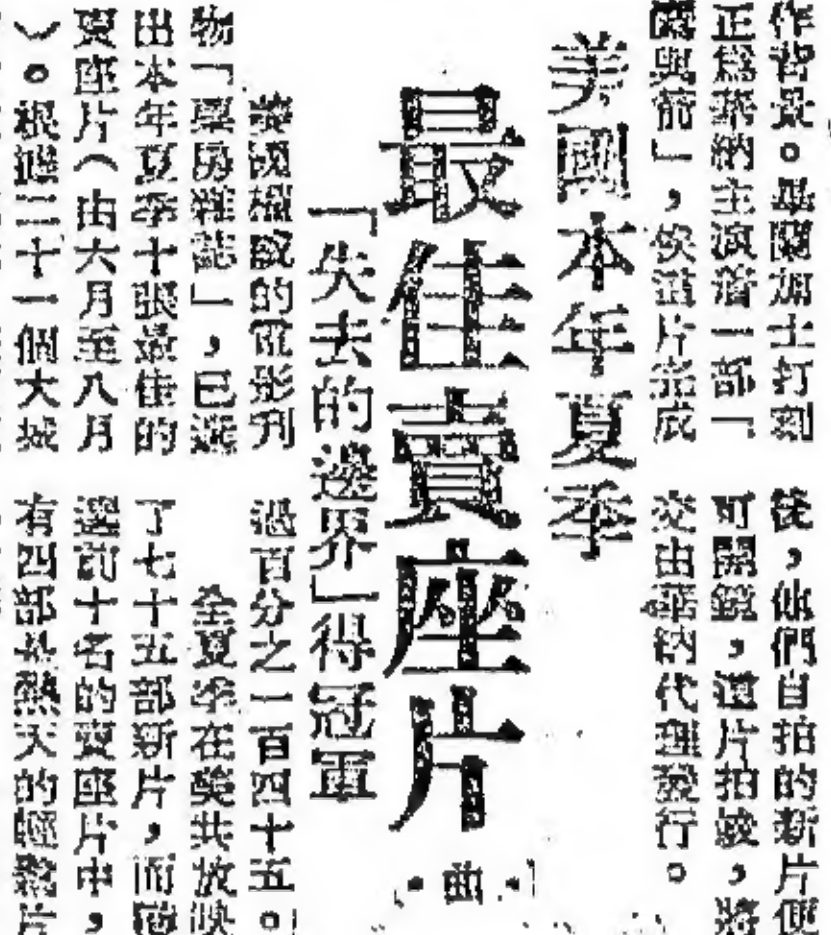 作背景。畢蘭加士打刻
正爲華納主演着一部「
與箭」,俟這片完成
後,他們自拍的新片便
可開鏡,這片拍竣,將
交由華納代理發行。
美國本年夏季
最佳賣座片
「失去的邊界」得冠軍
·曲·
美國權威的電影刊
物「票房雜誌」,已選
出本年夏季十張最佳的
賣座片(由六月至八月
)。根據二十一個大城
過百分之一百四十五。
全夏季在美共放映
了七十五部新片,而
選前十名的賣座片中,
有四部是熱天的輕鬆片